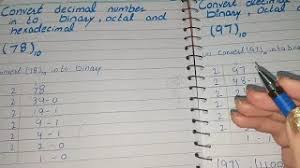 Convert decimal number
in to binary, octal and
hexadecimal
(78)₁₀
convert (78)₁₀ into binary
2 78
2 39-0
2 19-1
2 9-1
2 4-1
2 2-0
2 1-0
Convert
binary, octal
(97)₁₀
convert (97)₁₀ into
2 97
2 48-1
2
2
2
2
2 1-
(97)